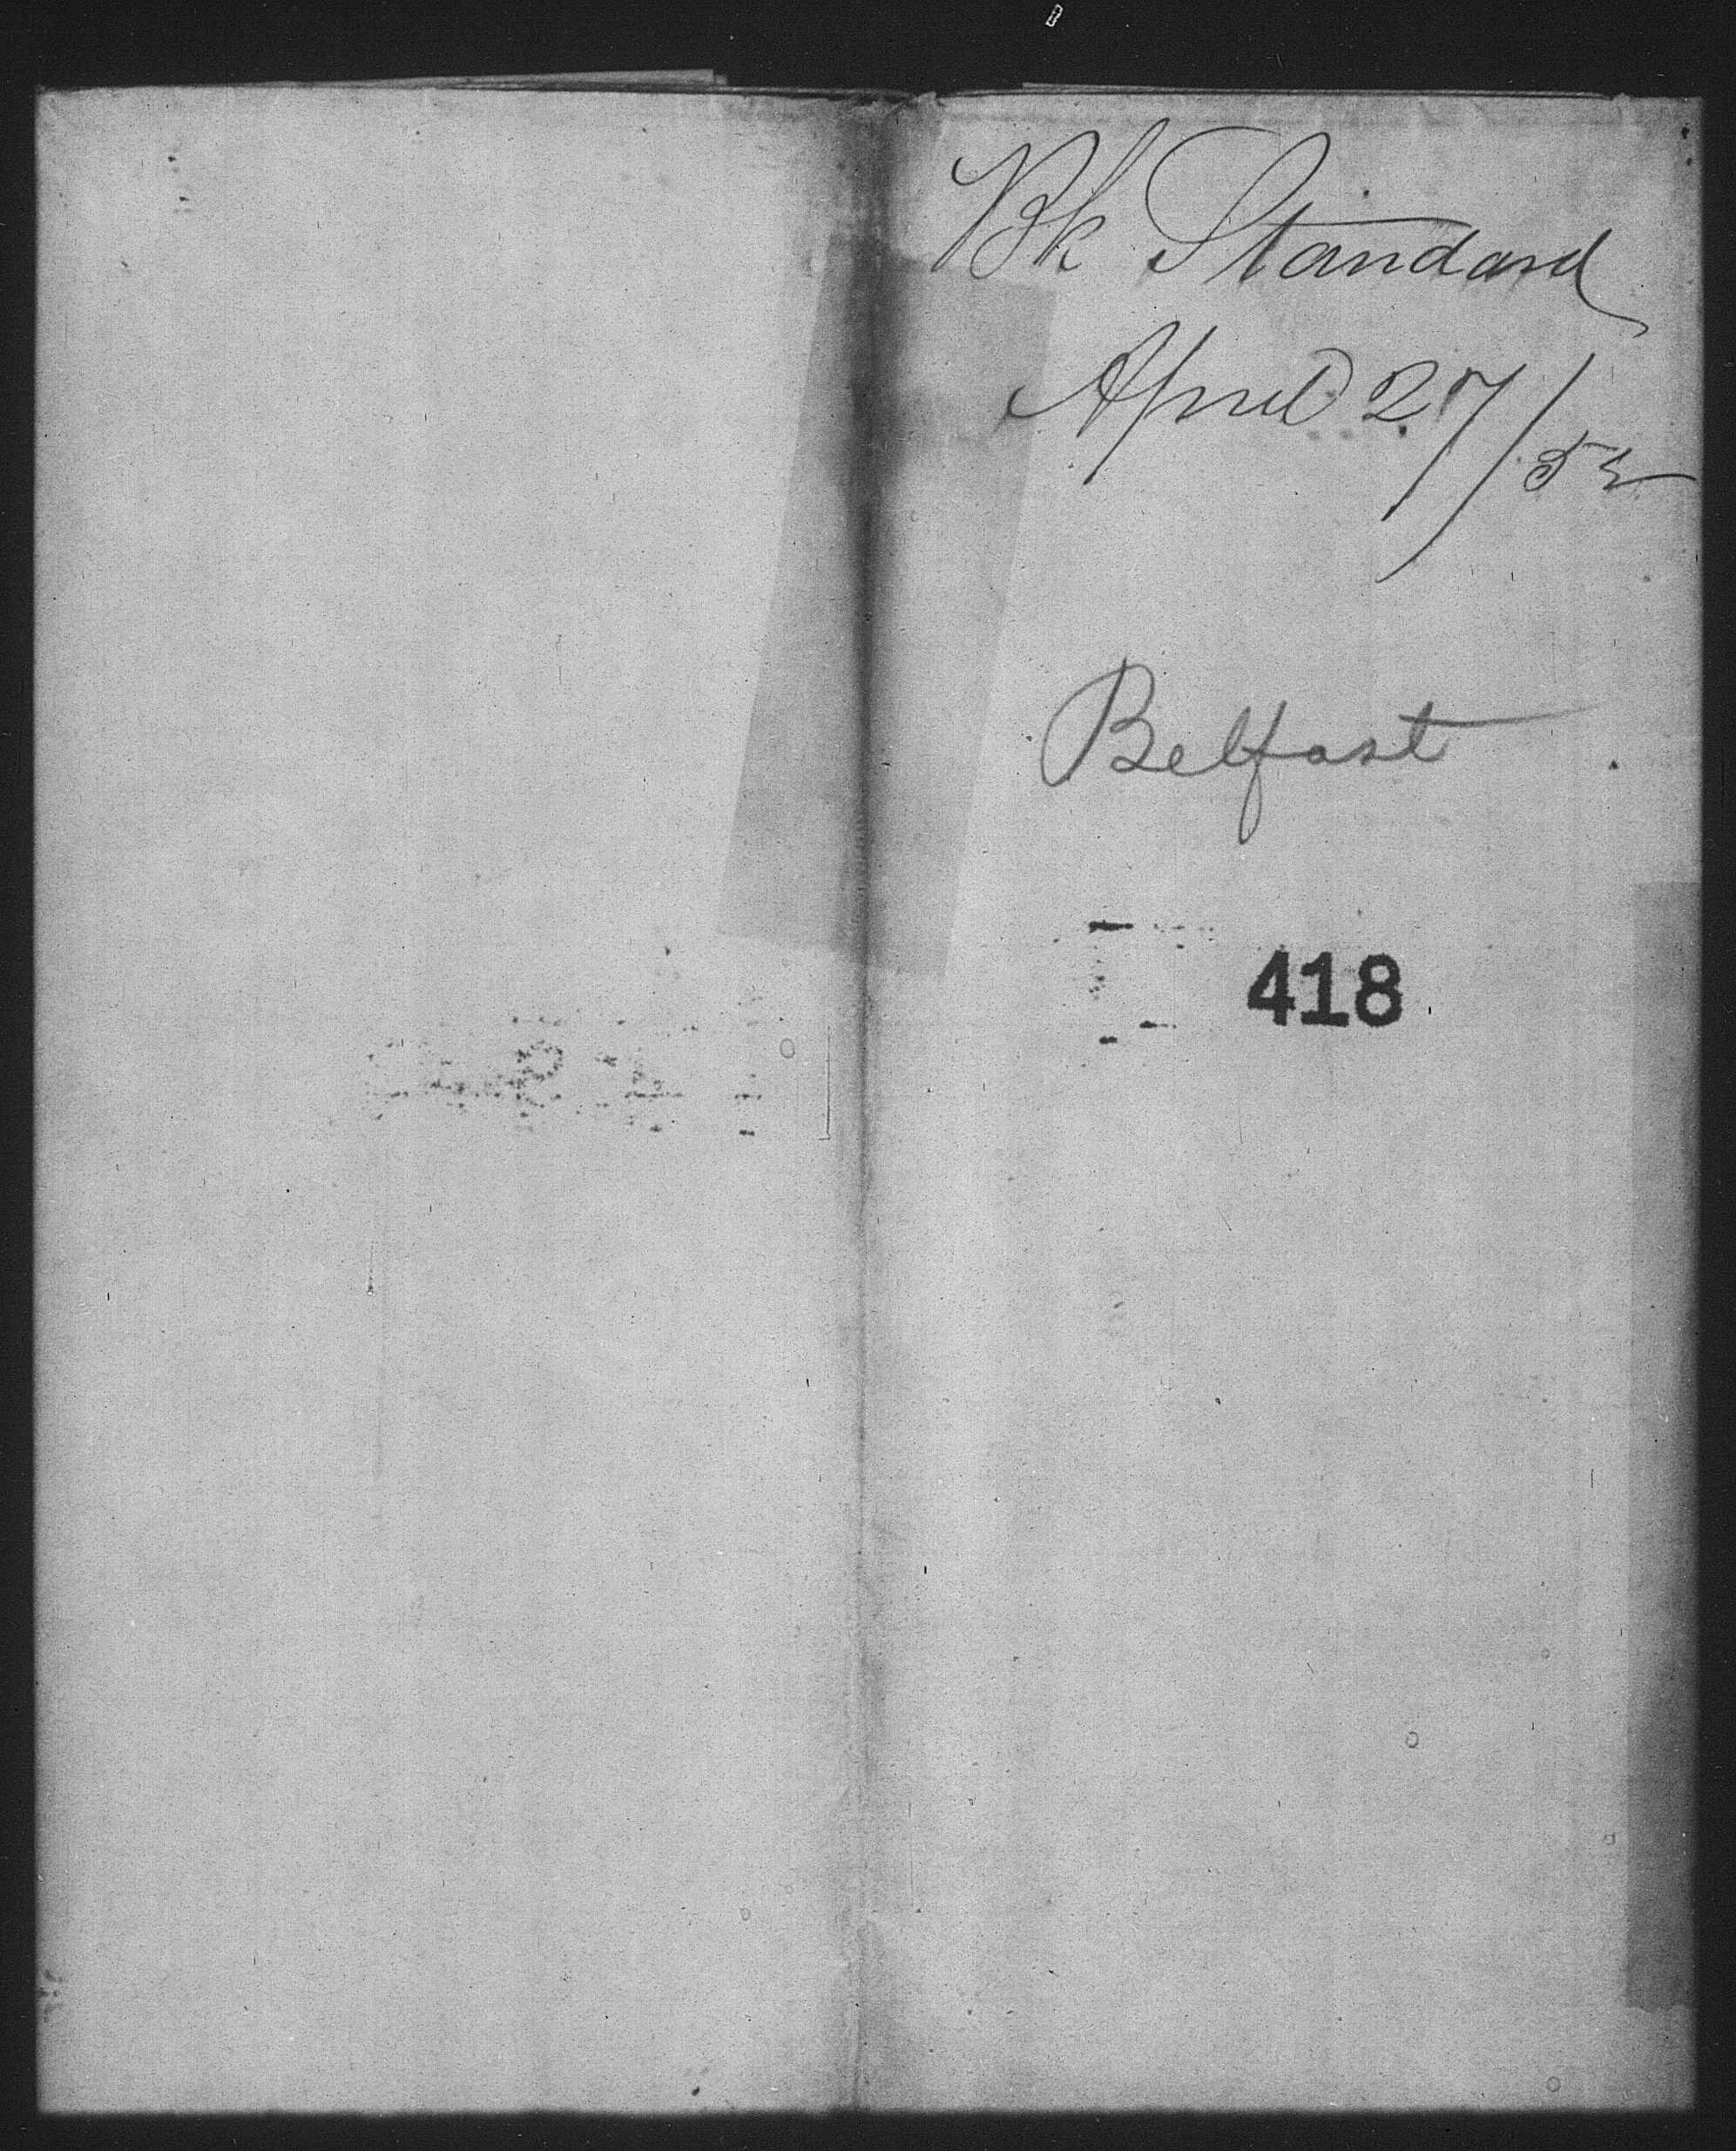 Bk Standard
April 27/52
Belfast
418